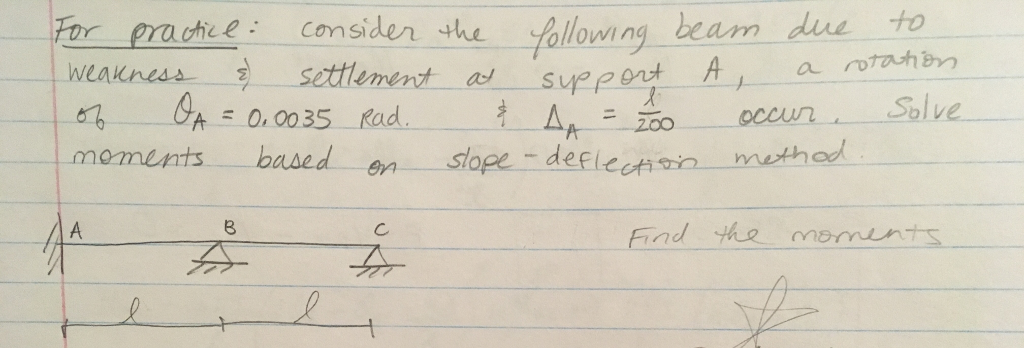 For practice: consider the following beam due to
weakness & settlement at support A, a rotation
of θA = 0.0035 Rad. & ΔA = l/200 occur. Solve
moments based on slope-deflection method.
A B C
Find the moments
l l